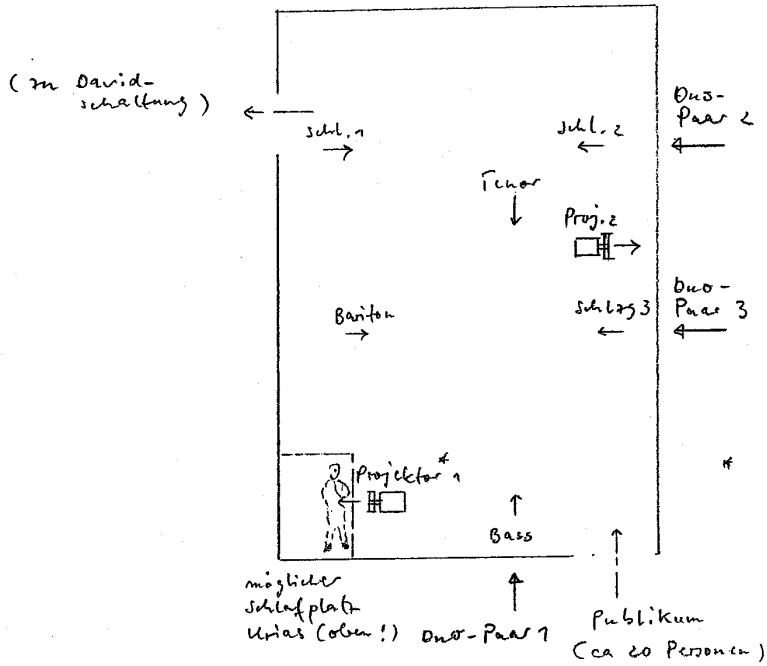 (zu David-
schaltung)
Schl. 1
Schl. 2
Duo-
Paar 2
Tenor
Proj. 2
Bariton
Schlag 3
Duo-
Paar 3
Projektor* 1
*
Bass
möglicher
Schlafplatz
Urias (oben!)
Duo-Paar 1
Publikum
(ca 20 Personen)